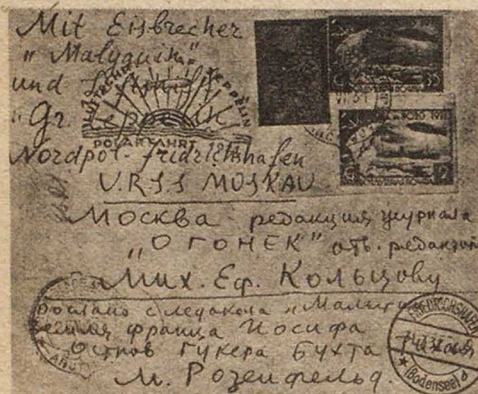 Mit Eisbrecher
"Malyguin"
und
"Gr. Zeppelin"
POLARFAHRT
Nordpol-fridrichshafen
U.R.S.S MOSKAU
Москва редакция журнала
"ОГОНЕК" отв. редактору
Мих. Еф. Кольцову
Послано с ледокола „Малыгин"
Земля Франца Иосифа
Остров Гукера Бухта
М. Розенфельд.
FRIEDRICHSHAFEN
(Bodensee)